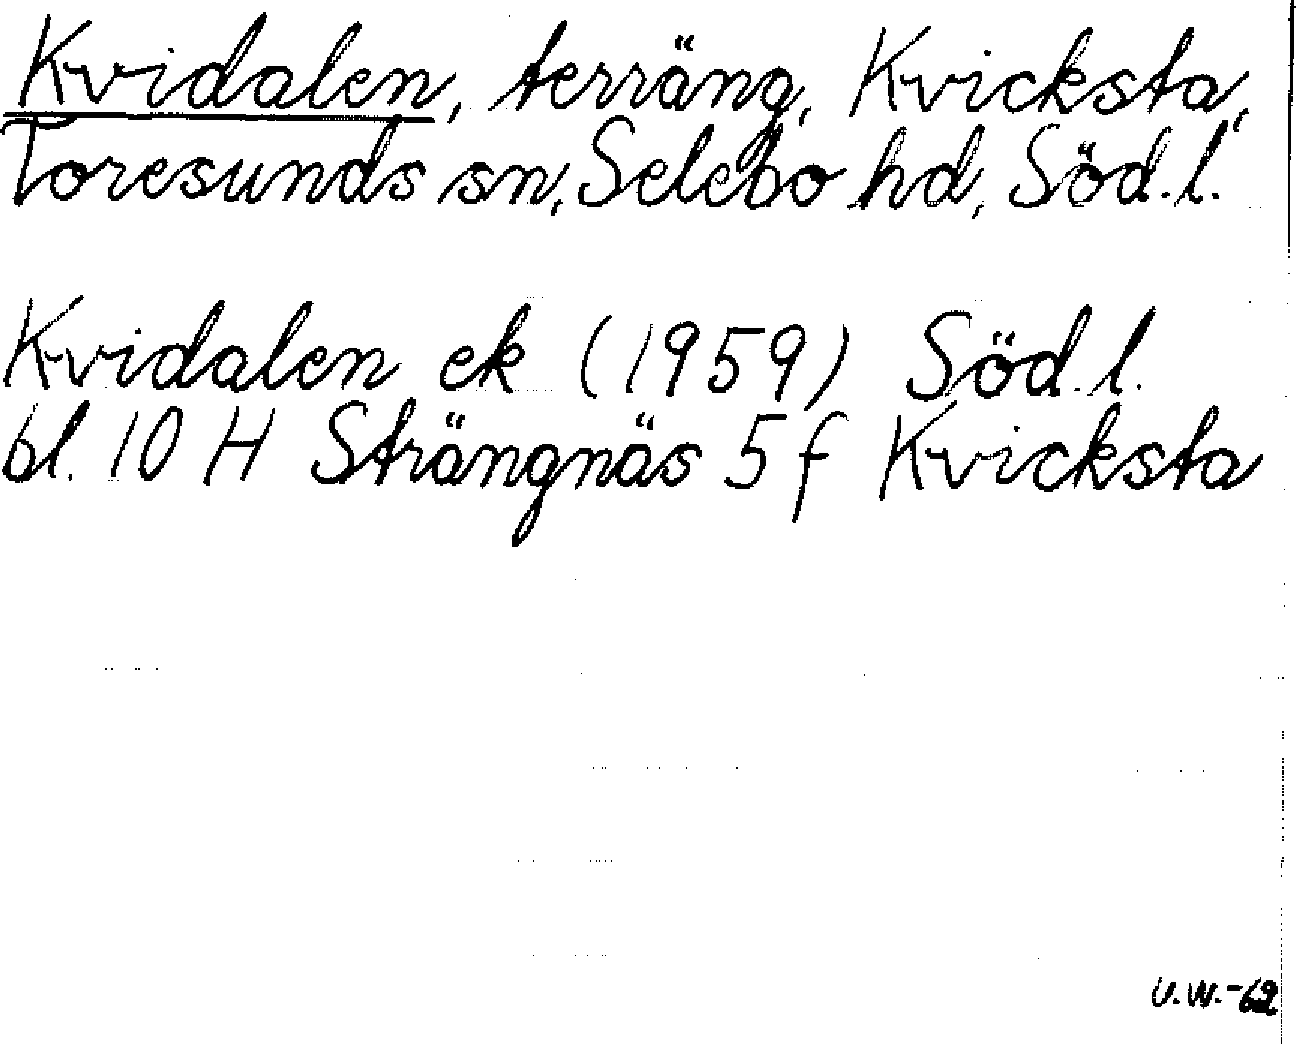 Kvidalen, terräng, Kvicksta,
Toresunds sn, Selebo hd, Söd.l.
Kvidalen ek (1959) Söd.l.
bl. 10 H Strängnäs 5 f Kvicksta
U.W.-62